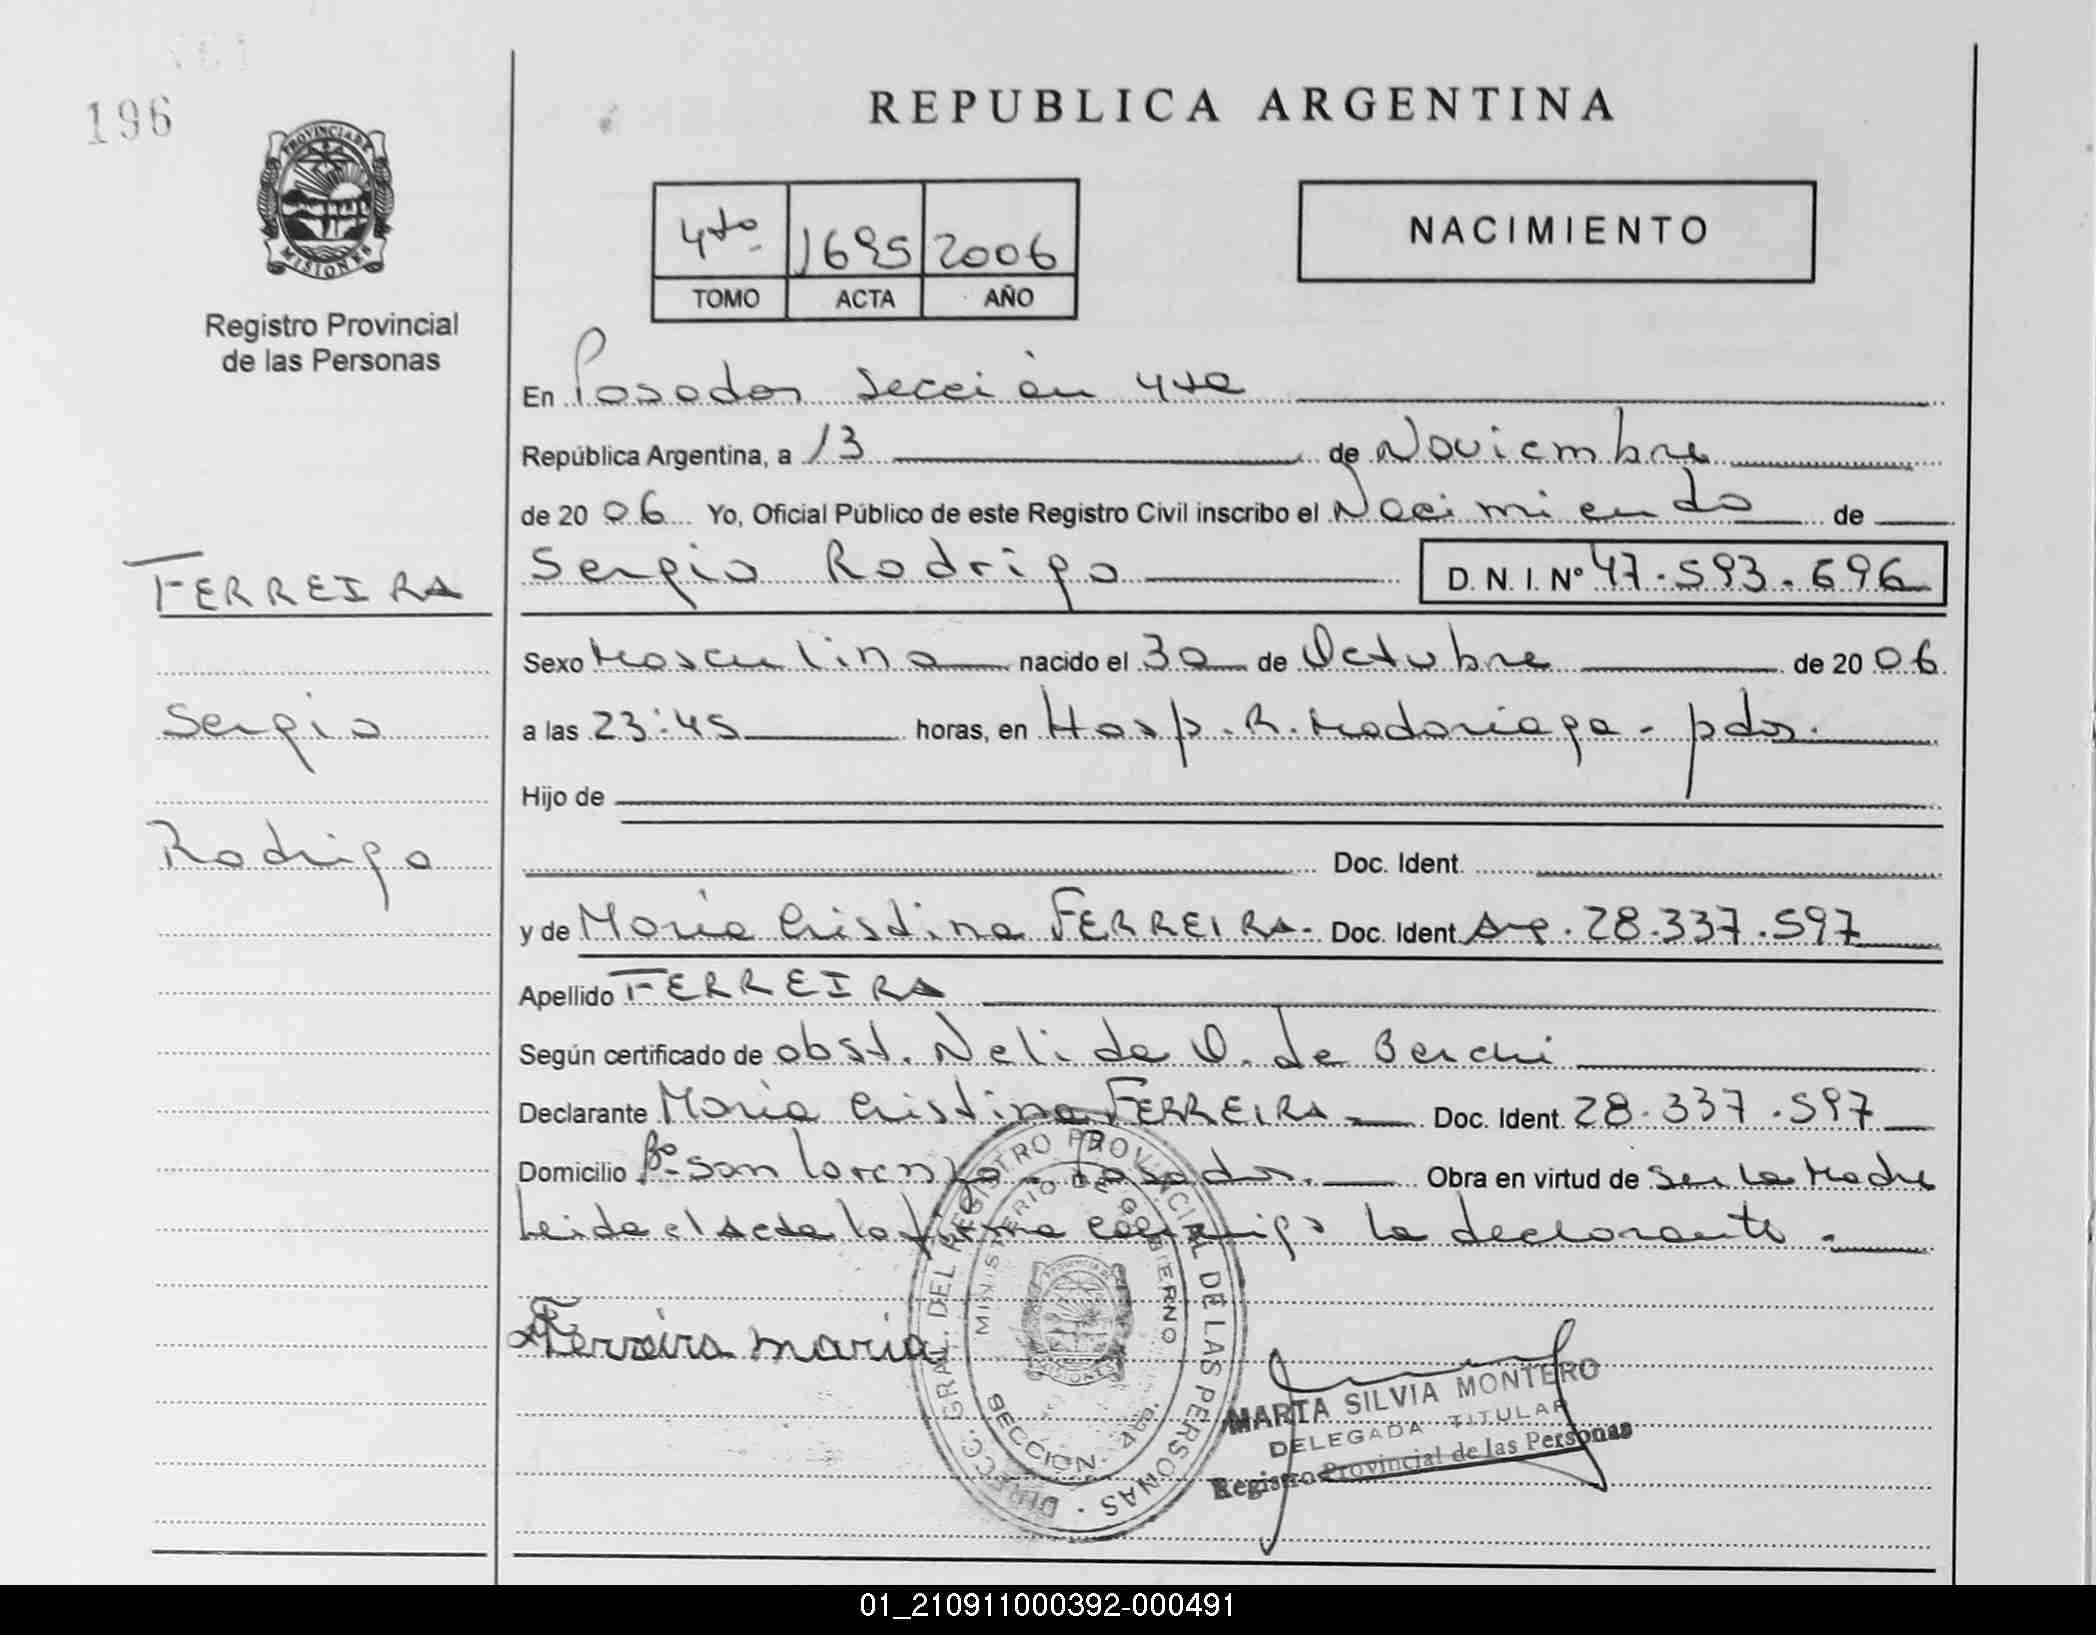 196
PROVINCIA DE
MISIONES
Registro Provincial
de las Personas
REPUBLICA ARGENTINA
4to. 1695 2006
TOMO ACTA AÑO
NACIMIENTO
En Posadas sección 4ta
República Argentina, a 13 de Noviembre
de 20 06 Yo, Oficial Público de este Registro Civil inscribo el Nacimiento de
FERREIRA
Sergio Rodrigo D.N.I. Nº 47.593.696
Sexo Masculino nacido el 30 de Octubre de 20 06
Sergio
a las 23:45 horas, en Hosp. R. Madariaga - pdas.
Hijo de
Rodrigo
Doc. Ident.
y de María Cristina FERREIRA. Doc. Ident. Arg. 28.337.597
Apellido FERREIRA
Según certificado de obst. Nelida O. de
Declarante María Cristina FERREIRA Doc. Ident. 28.337.597
Domicilio Bº San Lorenzo - Posadas. Obra en virtud de ser la Madre
Leida el Acta la firma conmigo la declarante.
Ferreira maria
DIRECC. GRAL. DEL REGISTRO PROVINCIAL DE LAS PERSONAS
MINISTERIO DE GOBIERNO
SECCION 4ta.
MARTA SILVIA MONTERO
DELEGADA TITULAR
Registro Provincial de las Personas
01_210911000392-000491